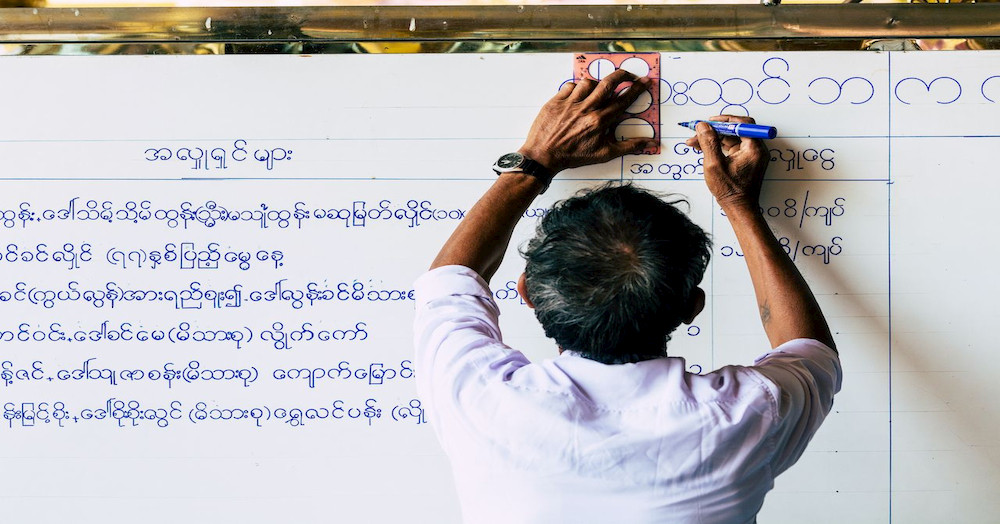 သွင် ဘ က
အလှူရှင် များ
အတွက် လှူငွေ
ထွန်း, ဒေါ်သိမ့်သိမ့်ထွန်း(သ္မီး)မသဉ္ဇူထွန်း မဆုမြတ်လှိုင်(၁၀)
၀ိ/ကျပ်
ခင်လှိုင် (၇၇)နှစ်ပြည့်မွေးနေ့
ကျပ်
ခင်(ကွယ်လွန်)အားရည်စူး၍ ဒေါ်လွန်းခင်မိသားစု
ဝင်း, ဒေါ်ခင်မေ(မိသားစု) လွိုက်ကော်
ဇင်, ဒေါ်သူဇာစန်း(မိသားစု) ကျောက်မြောင်း
မြင့်စိုး, ဒေါ်စိုးစိုးလွင် (မိသားစု) ရွှေလင်ပန်း (လှိ